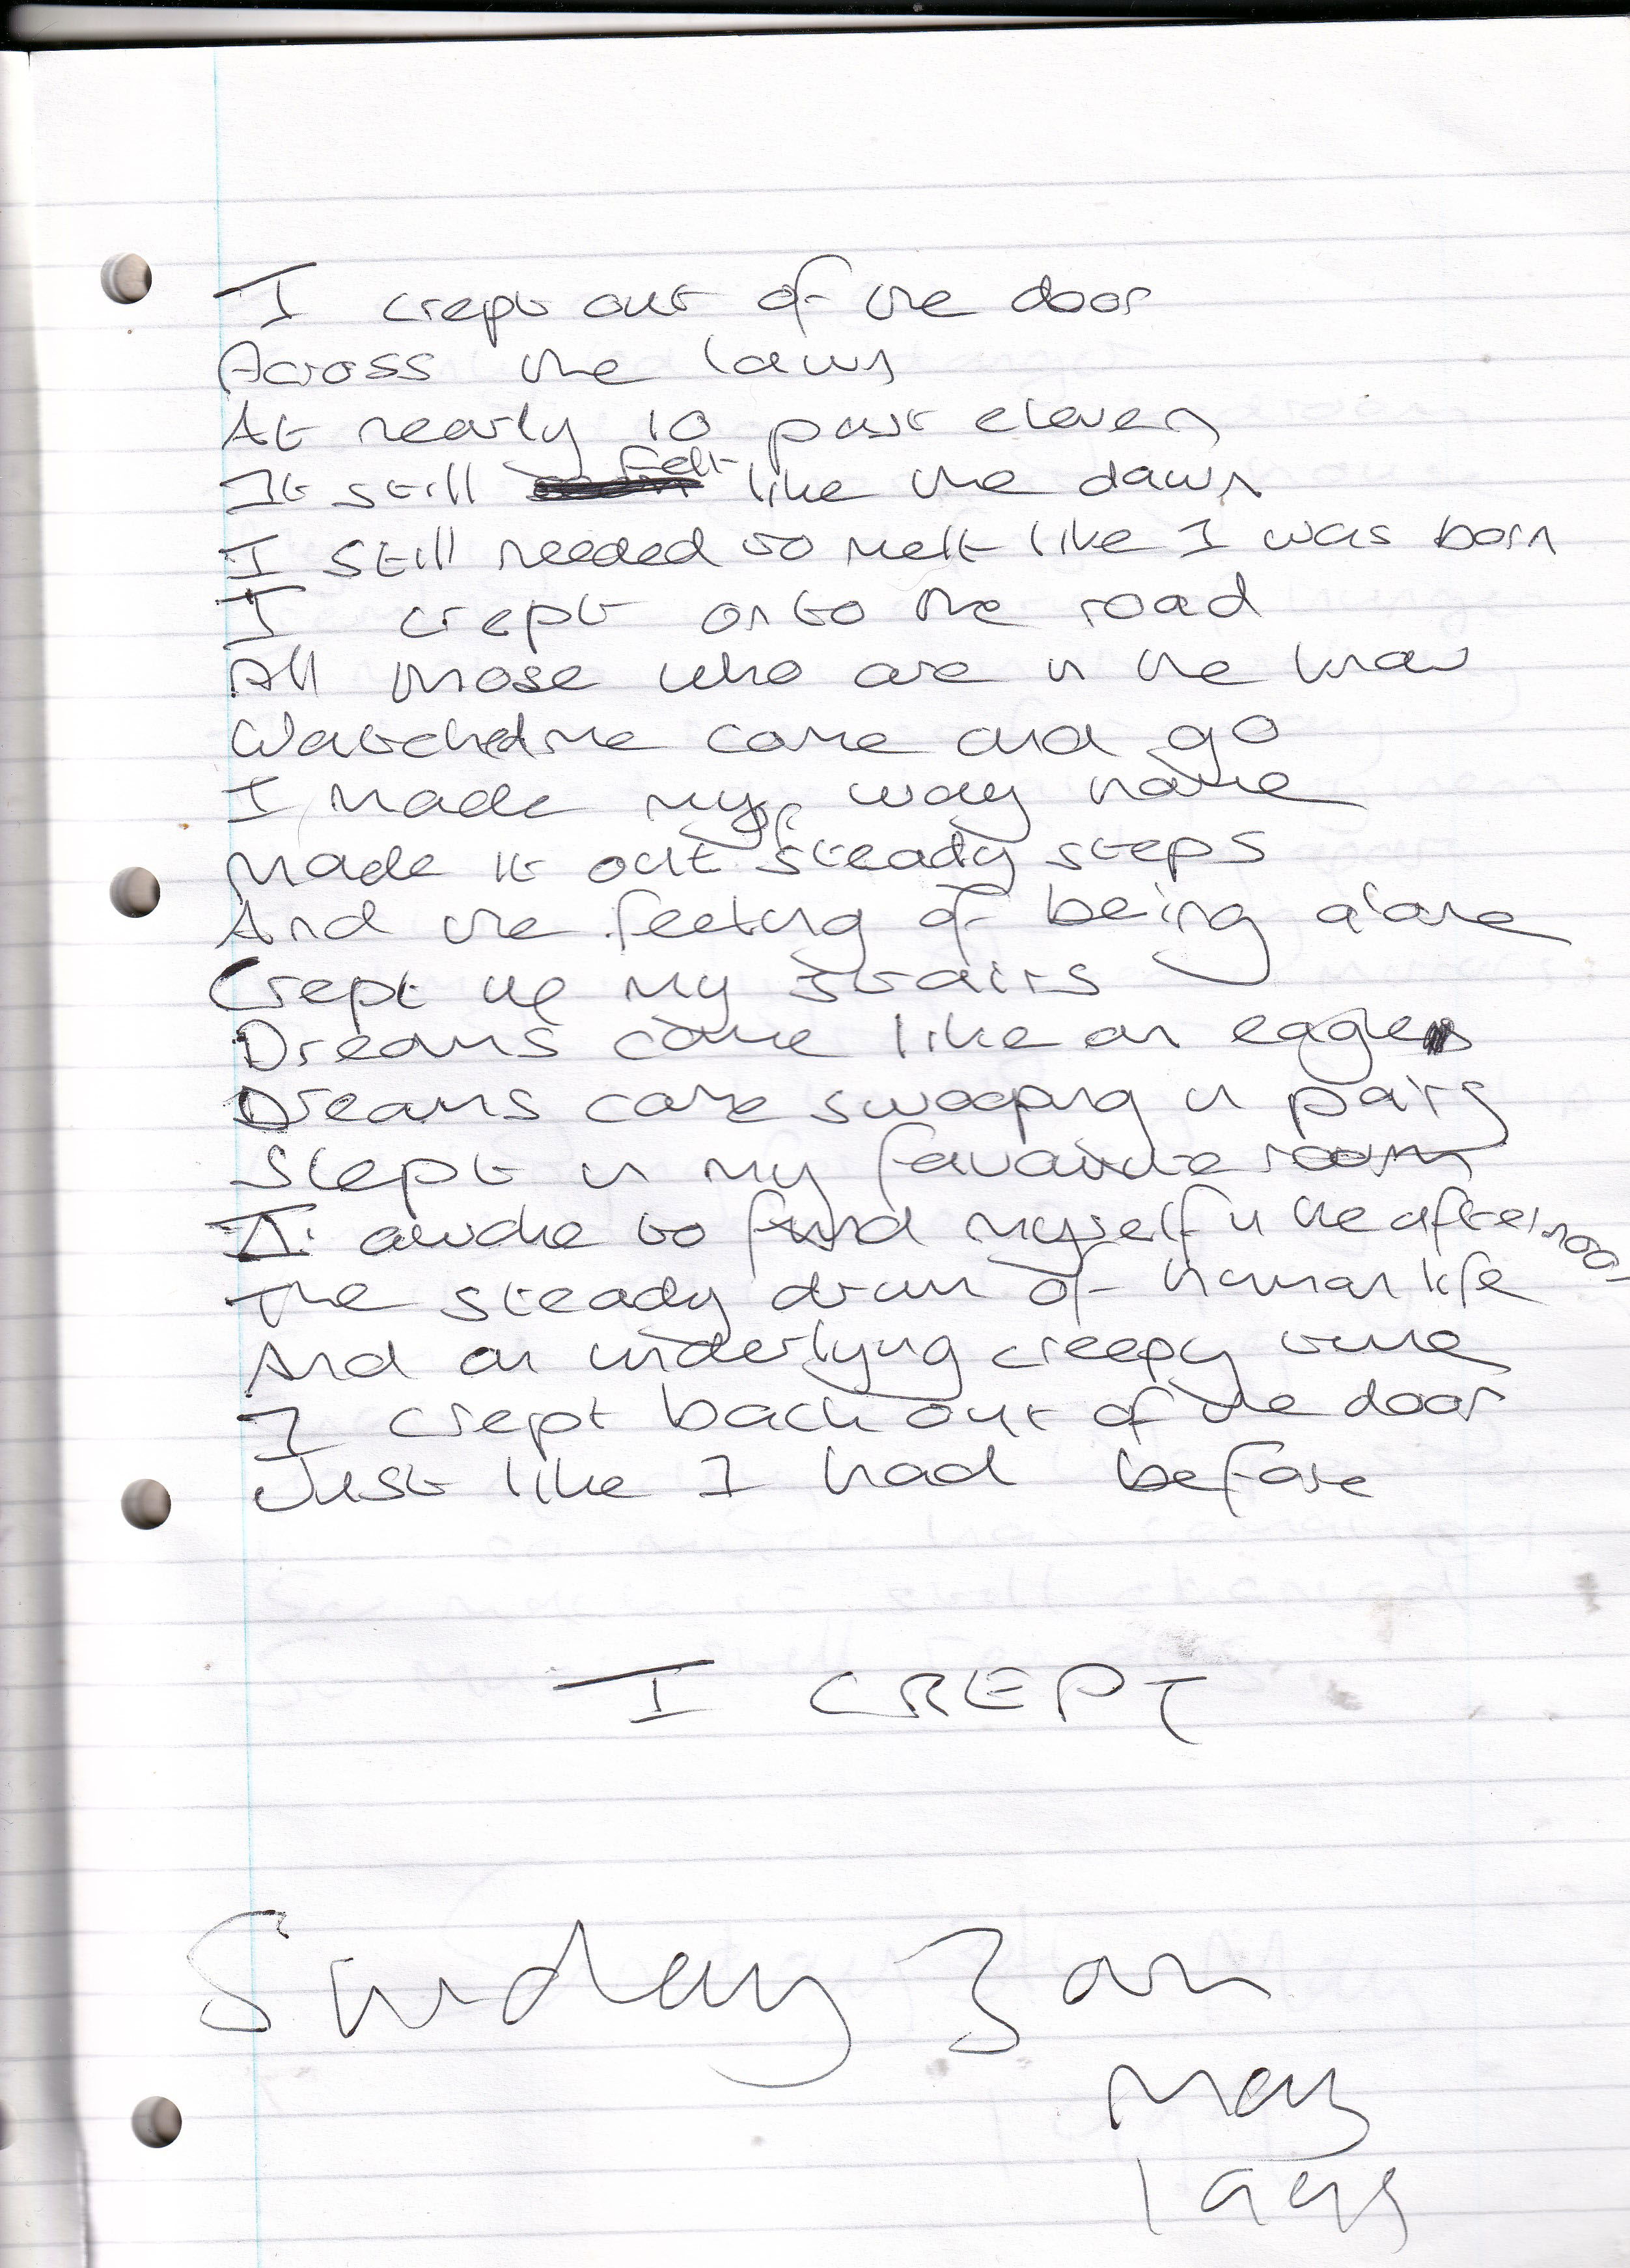 I crept out of the door
Across the lawn
At nearly 10 past eleven
It still felt like the dawn
I still needed to melt like I was born
I crept onto the road
All those who are in the know
Watched me come and go
I made my way home
Made it out of steady steps
And the feeling of being alone
Crept up my stairs
Dreams come like an eagle
Dreams come swooping in pairs
Slept in my favourite room
I awoke to find myself in the afternoon
The steady drum of human life
And an underlying creepy tune
I crept back out of the door
Just like I had before
I CREPT
Sunday 3am
May